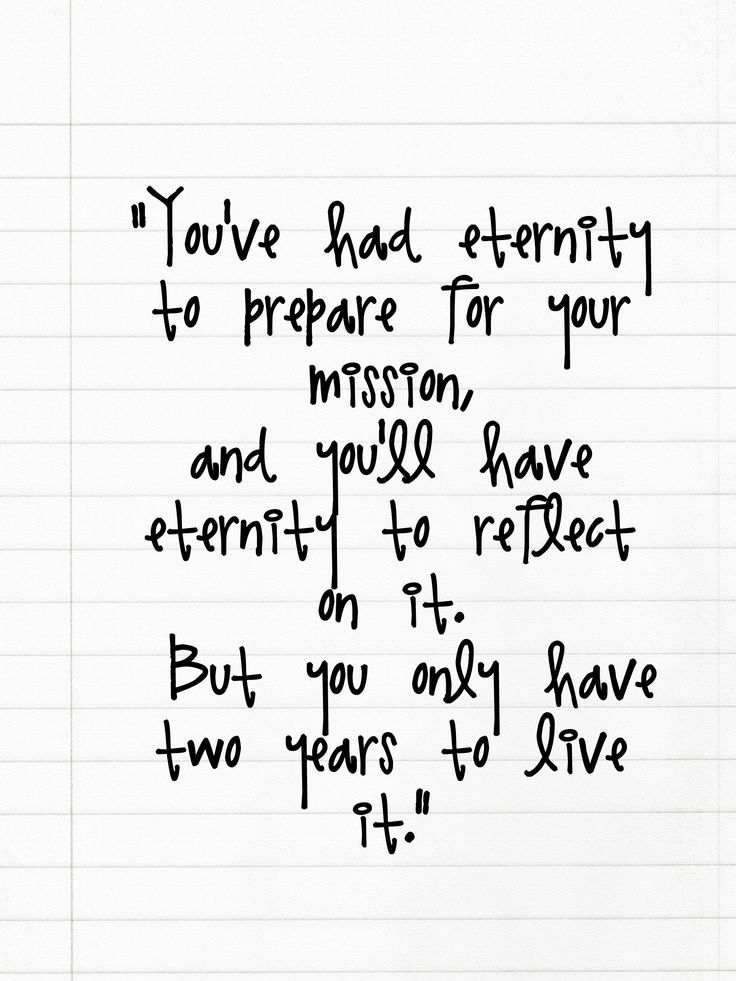 "You've had eternity
to prepare for your
mission,
and you'll have
eternity to reflect
on it.
But you only have
two years to live
it."